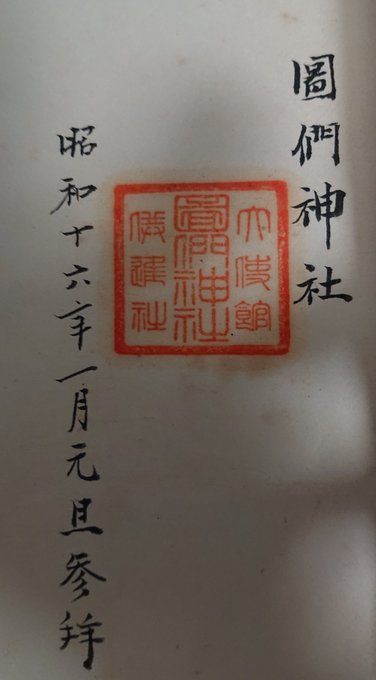 圖們神社
大使館
圖們神社
進社
昭和十六年一月元旦参拜